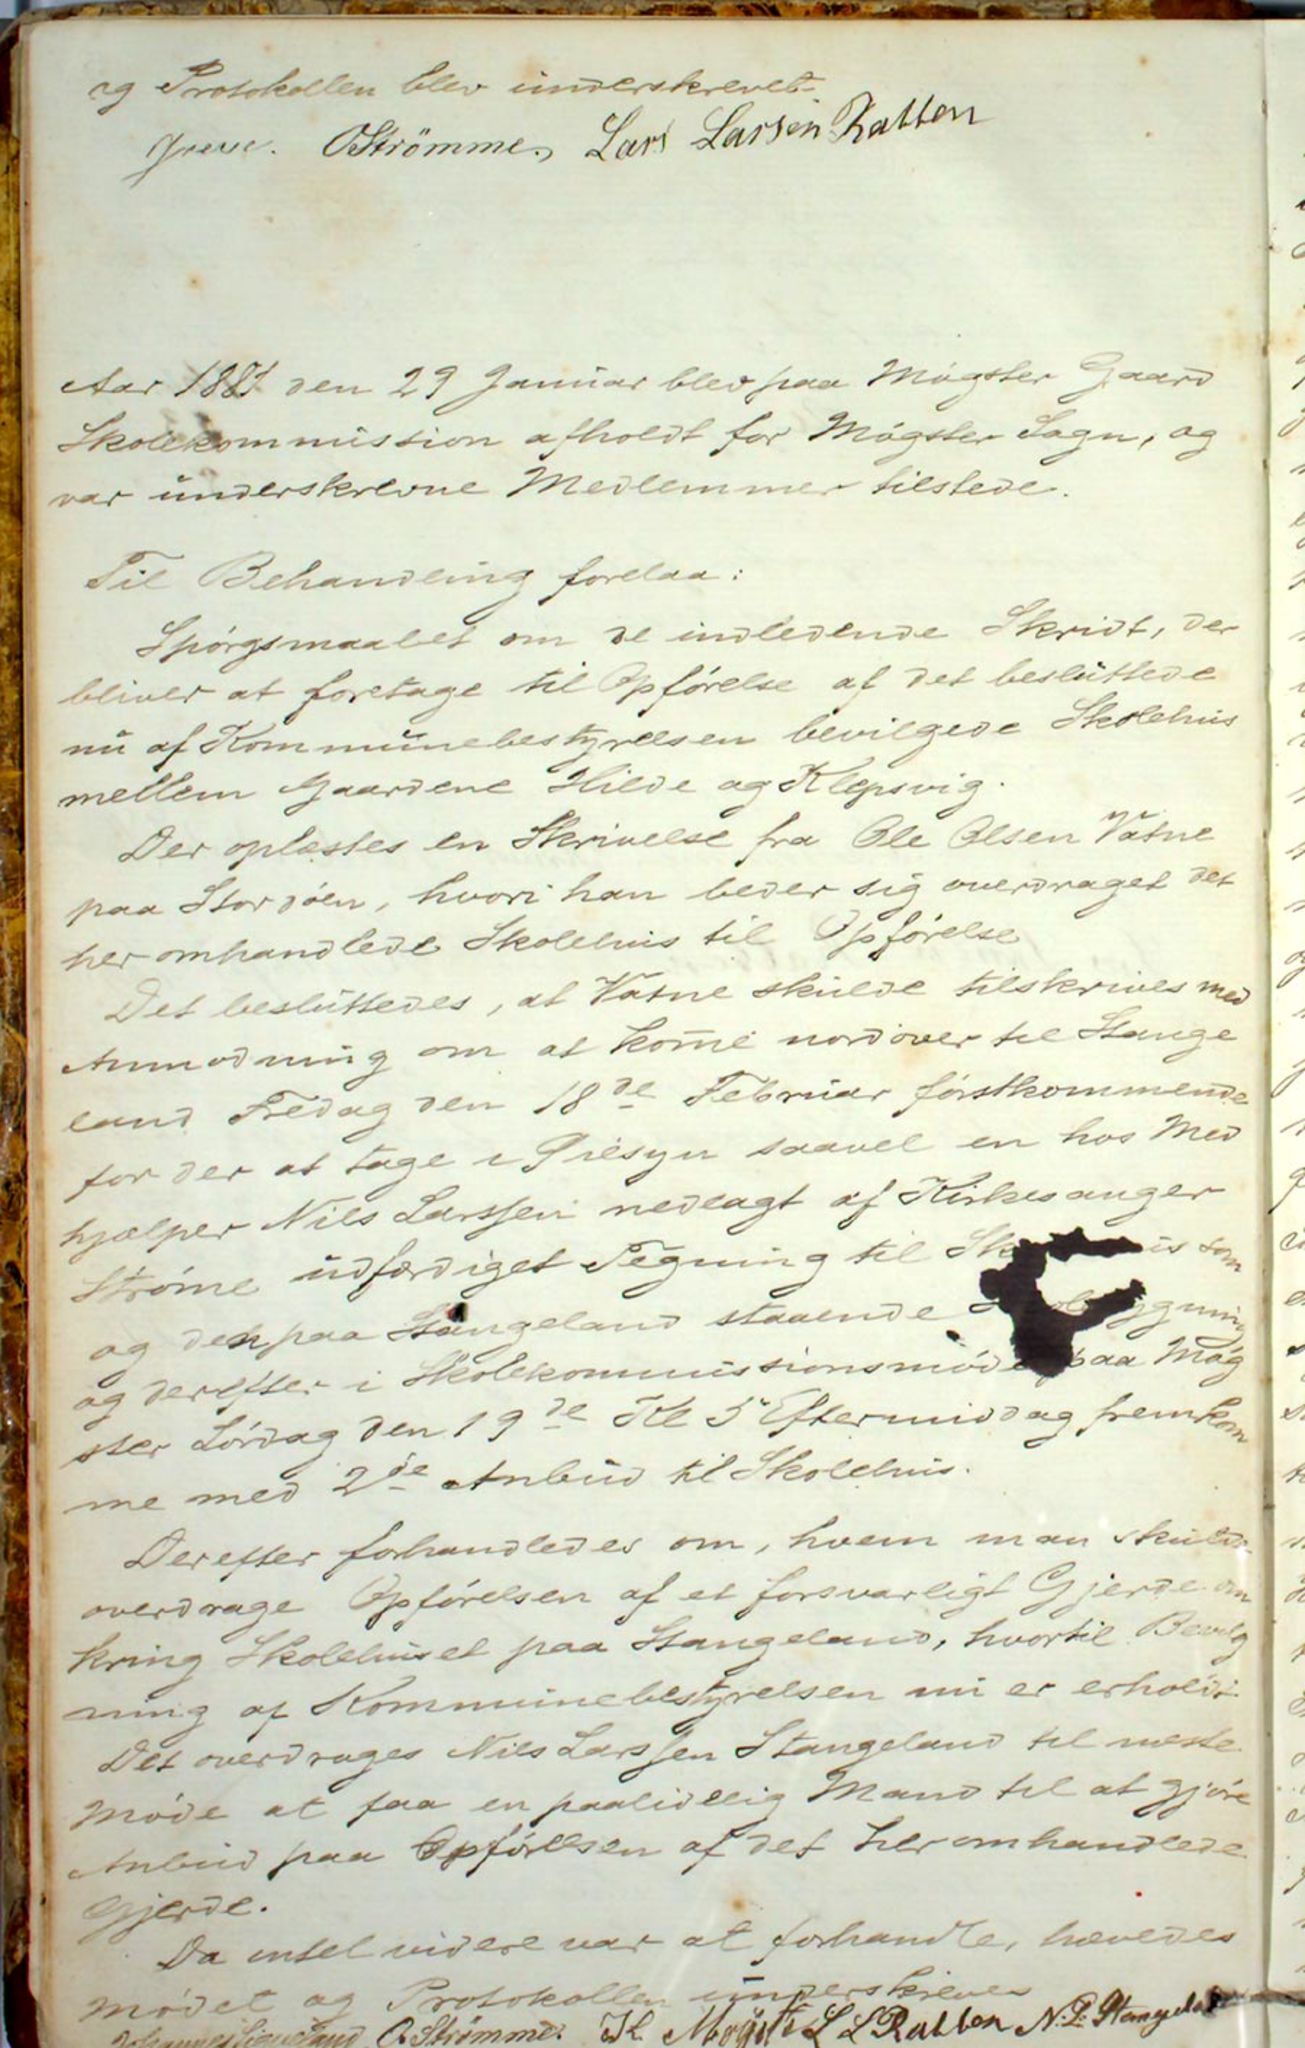 og Protokollen blev underskrevet.
Greve. OStrömme, Lars Larsen Ratten
Aar 1881 den 29 Januar blev paa Møgster Gaard
Skolekommission afholdt for Møgster Sogn, og
var underskrevne Medlemmer tilstede.
Til Behandling forelaa:
Spørgsmaalet om de indledende Skridt, der
bliver at foretage til Opførelse af det besluttede
nu af Kommunebestyrelsen bevilgede Skolehus
mellem Gaardene Hilde og Klepsvig.
Der oplæstes en Skrivelse fra Ole Olsen Vatne
paa Stordøen, hvori han beder sig overdraget det
her omhandlede Skolehus til Opførelse
Det besluttedes, at Vatne skulde tilskrives med
Anmodning om at kom̄e nordover til Stange
land Fredag den 18de Februar førstkommende
for der at tage i Øiesyn saavel en hos Med
hjælper Nils Larssen nedlagt af Kirkesanger
Strøme udfærdiget Tegning til som
og den paa Stangeland staaende
og derefter i Skolekommissionsmøde paa Møg
ster Lørdag den 19de Kl 5 Eftermiddag fremkom
me med 2de Anbud til Skolehus.
Derefter forhandledes om, hvem man skulde
overdrage Opførelsen af et forsvarligt Gjerde om
kring Skolehuset paa Stangeland, hvortil Bevilg
ning af Kommunebestyrelsen nu er erholdt
Det overdrages Nils Larssen Stangeland til næste
Møde at faa en paalidelig Mand til at gjøre
Anbud paa Opførelsen af det her omhandlede
Gjerde.
Da intet videre var at forhandle, hævedes
Mødet og Protokollen underskreves
OStrömme. L L Ratten N. L. Stangeland